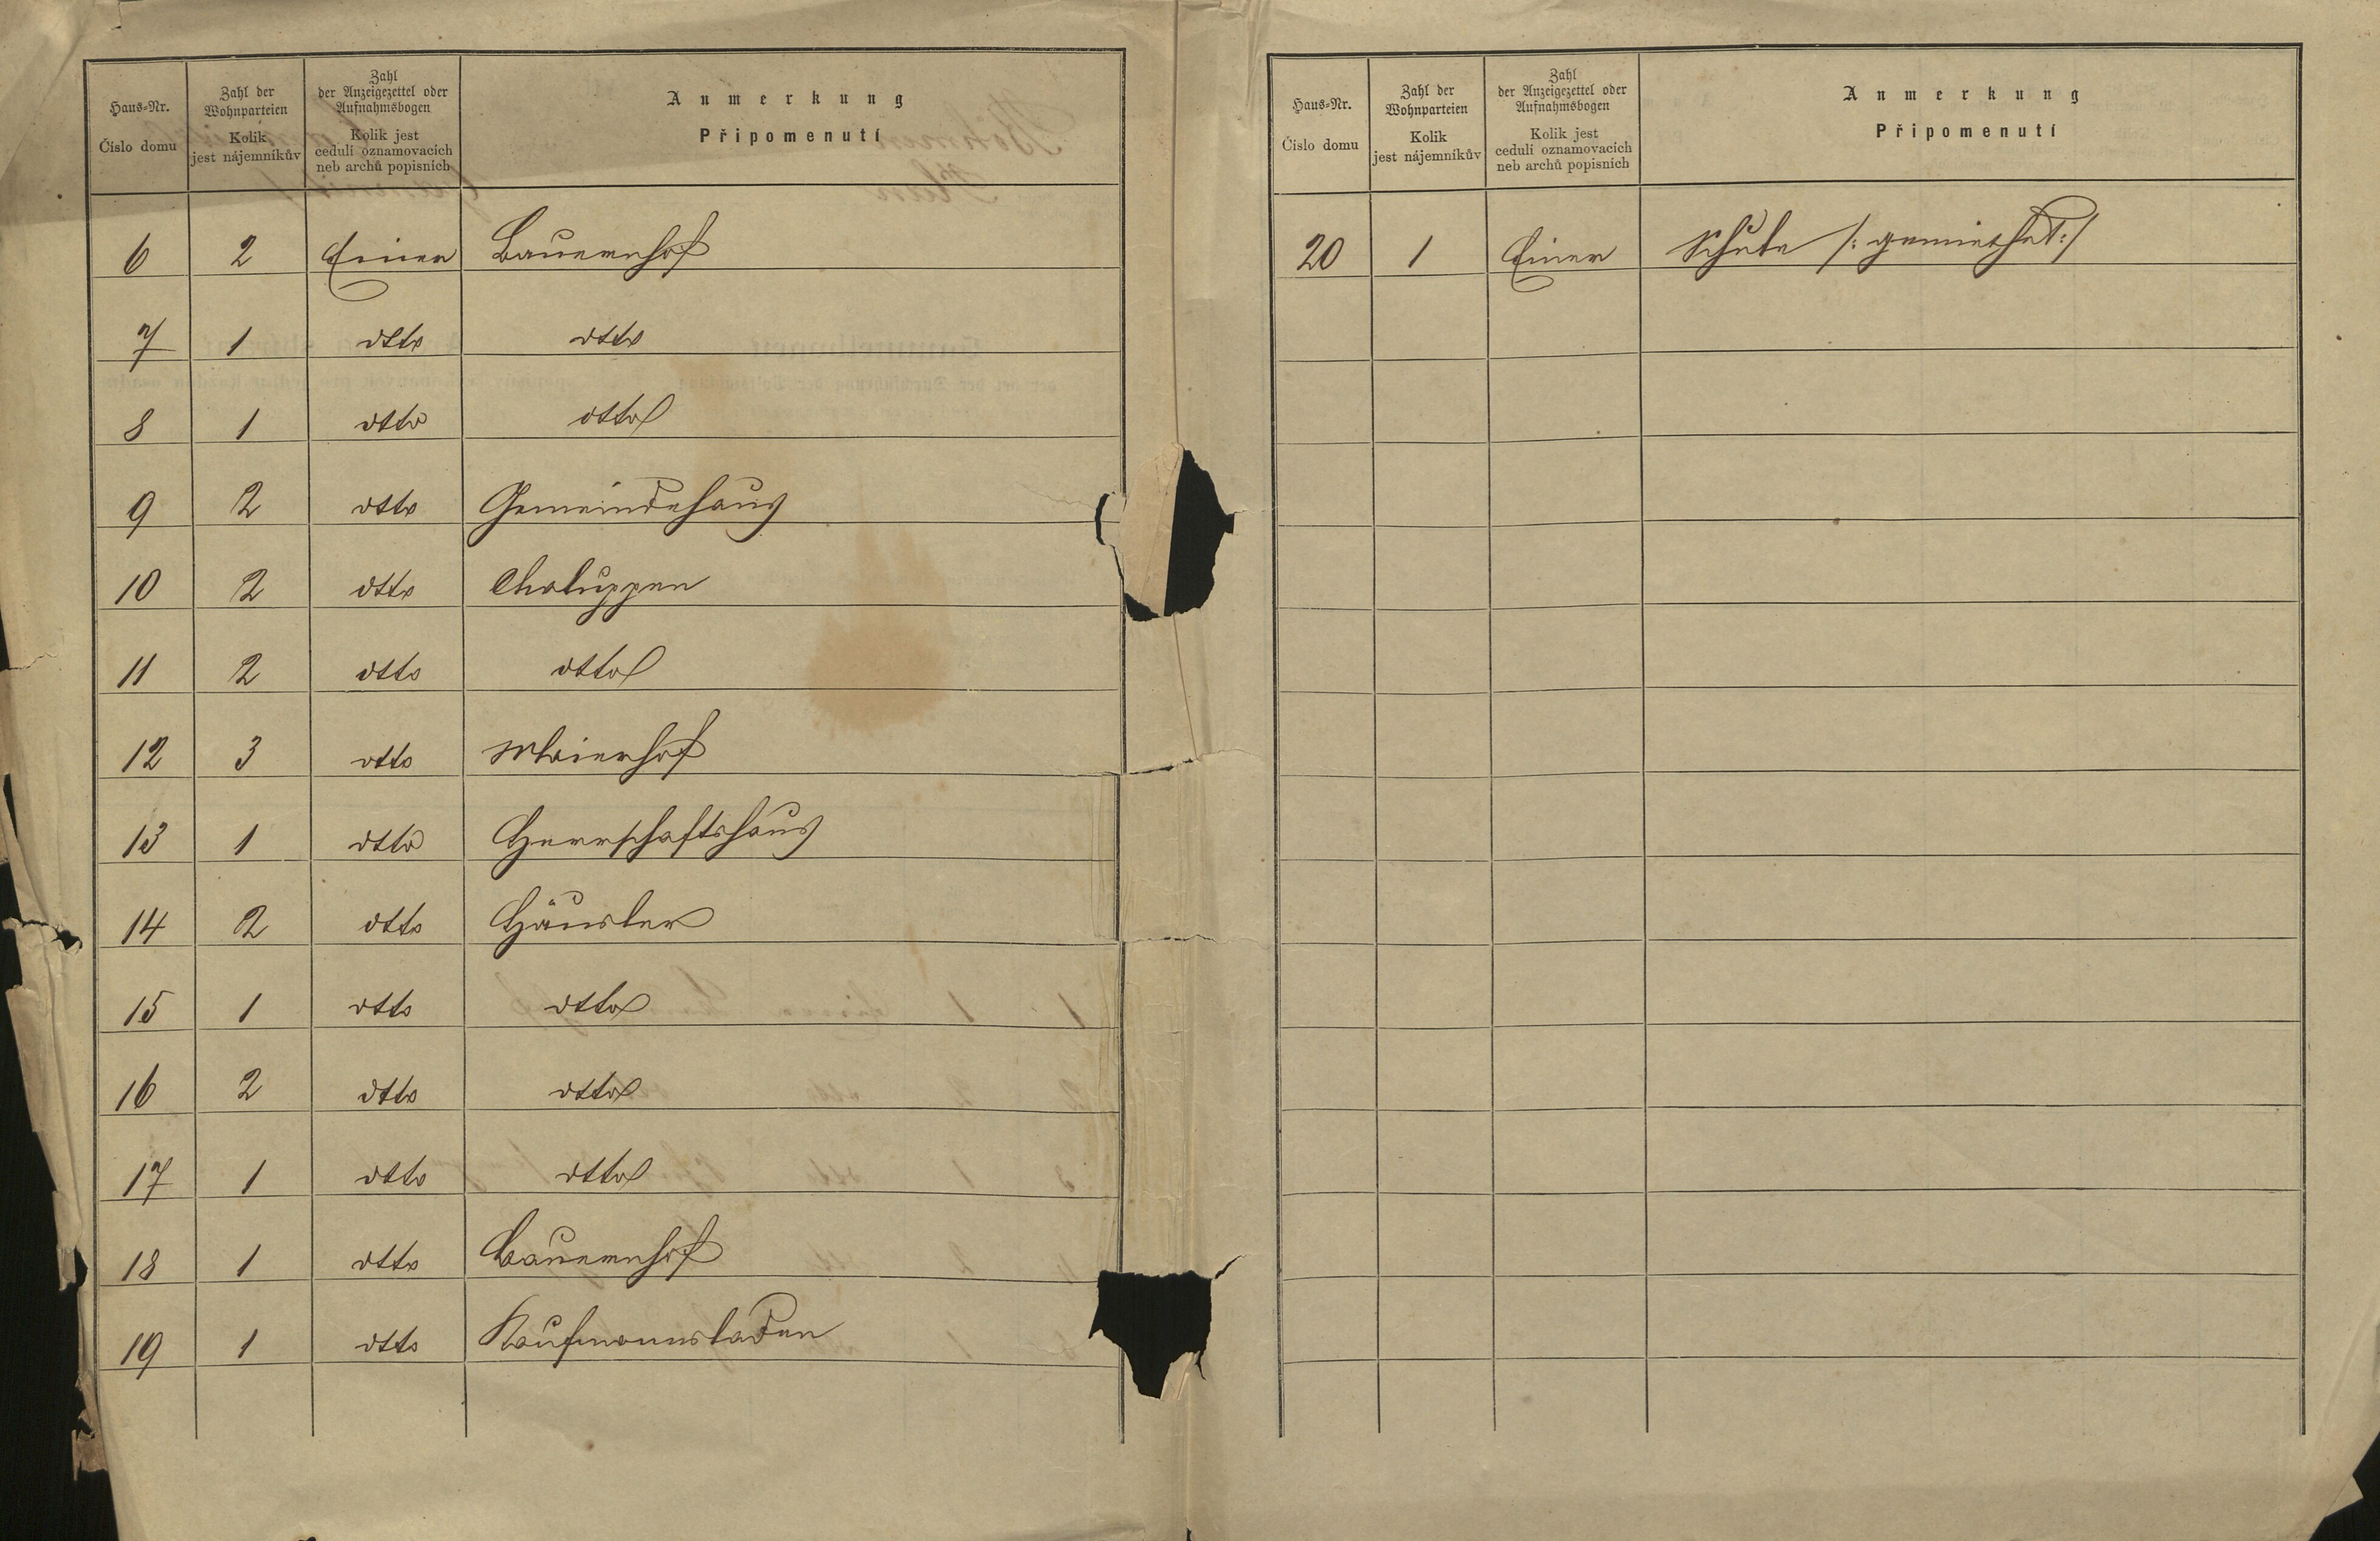 Haus-Nr.
Číslo domu
Zahl der
Wohnparteien
Kolik
jest nájemníkův
Zahl
der Anzeigezettel oder
Aufnahmsbogen
Kolik jest
cedulí oznamovacích
neb archů popisních
Anmerkung
Připomenutí
6 2 Einen Bauernhof
7 1 dtto dtto
8 1 dtto dtto
9 2 dtto Gemeindehaus
10 2 dtto Chaluppen
11 2 dtto dtto
12 3 dtto Maierhof
13 1 dtto Herrschaftshaus
14 2 dtto Häusler
15 1 dtto dtto
16 2 dtto dtto
17 1 dtto dtto
18 1 dtto Bauernhof
19 1 dtto Kaufmannsladen
Haus-Nr.
Číslo domu
Zahl der
Wohnparteien
Kolik
jest nájemníkův
Zahl
der Anzeigezettel oder
Aufnahmsbogen
Kolik jest
cedulí oznamovacích
neb archů popisních
Anmerkung
Připomenutí
20 1 Einen Schule /: gemiethet :/